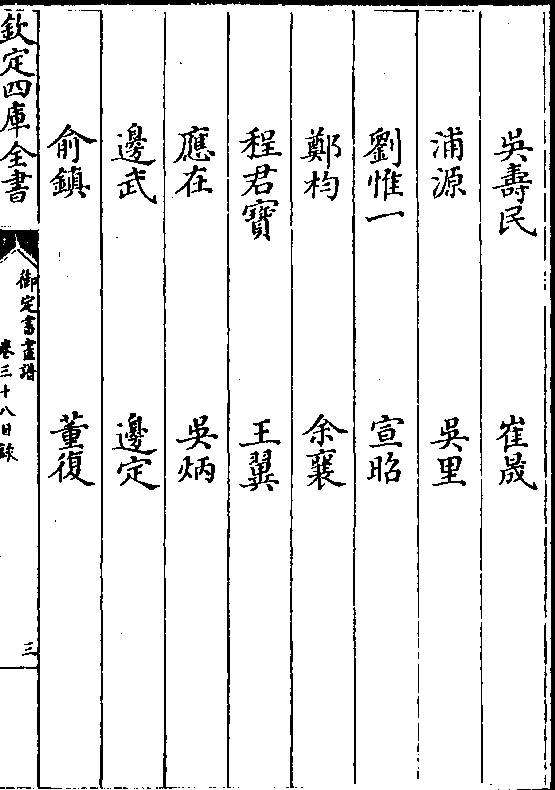 吳壽民 崔晟
浦源 吳里
劉惟一 宣昭
鄭枃 余襄
程君寶 王翼
應在 吳炳
邊武 邊定
俞鎮 董復
欽定四庫全書
御定書畫譜
卷三十八目錄
三